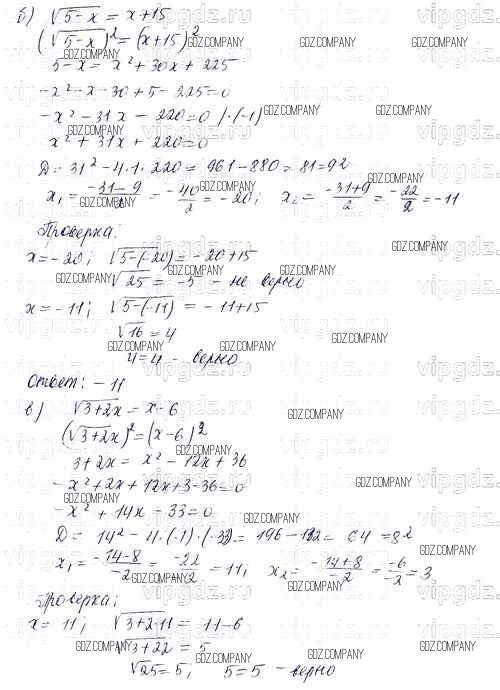 б) √5-x = x+15
(√5-x)² = (x+15)²
5-x = x²+30x+225
-x²-x-30+5-225=0
-x²-31x-220=0 /·(-1)
x²+31x+220=0
D=31²-4·1·220=961-880=81=92
x₁= -31-9/2 = -40/2 = -20; x₂= -31+9/2 = -22/2 = -11
Проверка:
x=-20; √5-(-20) = -20+15
√25 = -5 - не верно
x=-11; √5-(-11) = -11+15
√16 = 4
4=4 - верно
Ответ: -11
в) √3+2x = x-6
(√3+2x)² = (x-6)²
3+2x = x²-12x+36
-x²+2x+12x+3-36=0
-x²+14x-33=0
D=14²-4·(-1)·(-33)=196-132=64=8²
x₁= -14-8/-2 = -22/-2 = 11, x₂= -14+8/-2 = -6/-2 = 3
Проверка:
x=11; √3+2·11 = 11-6
√3+22 = 5
√25=5; 5=5 - верно
vipgdz.ru
GDZ.COMPANY